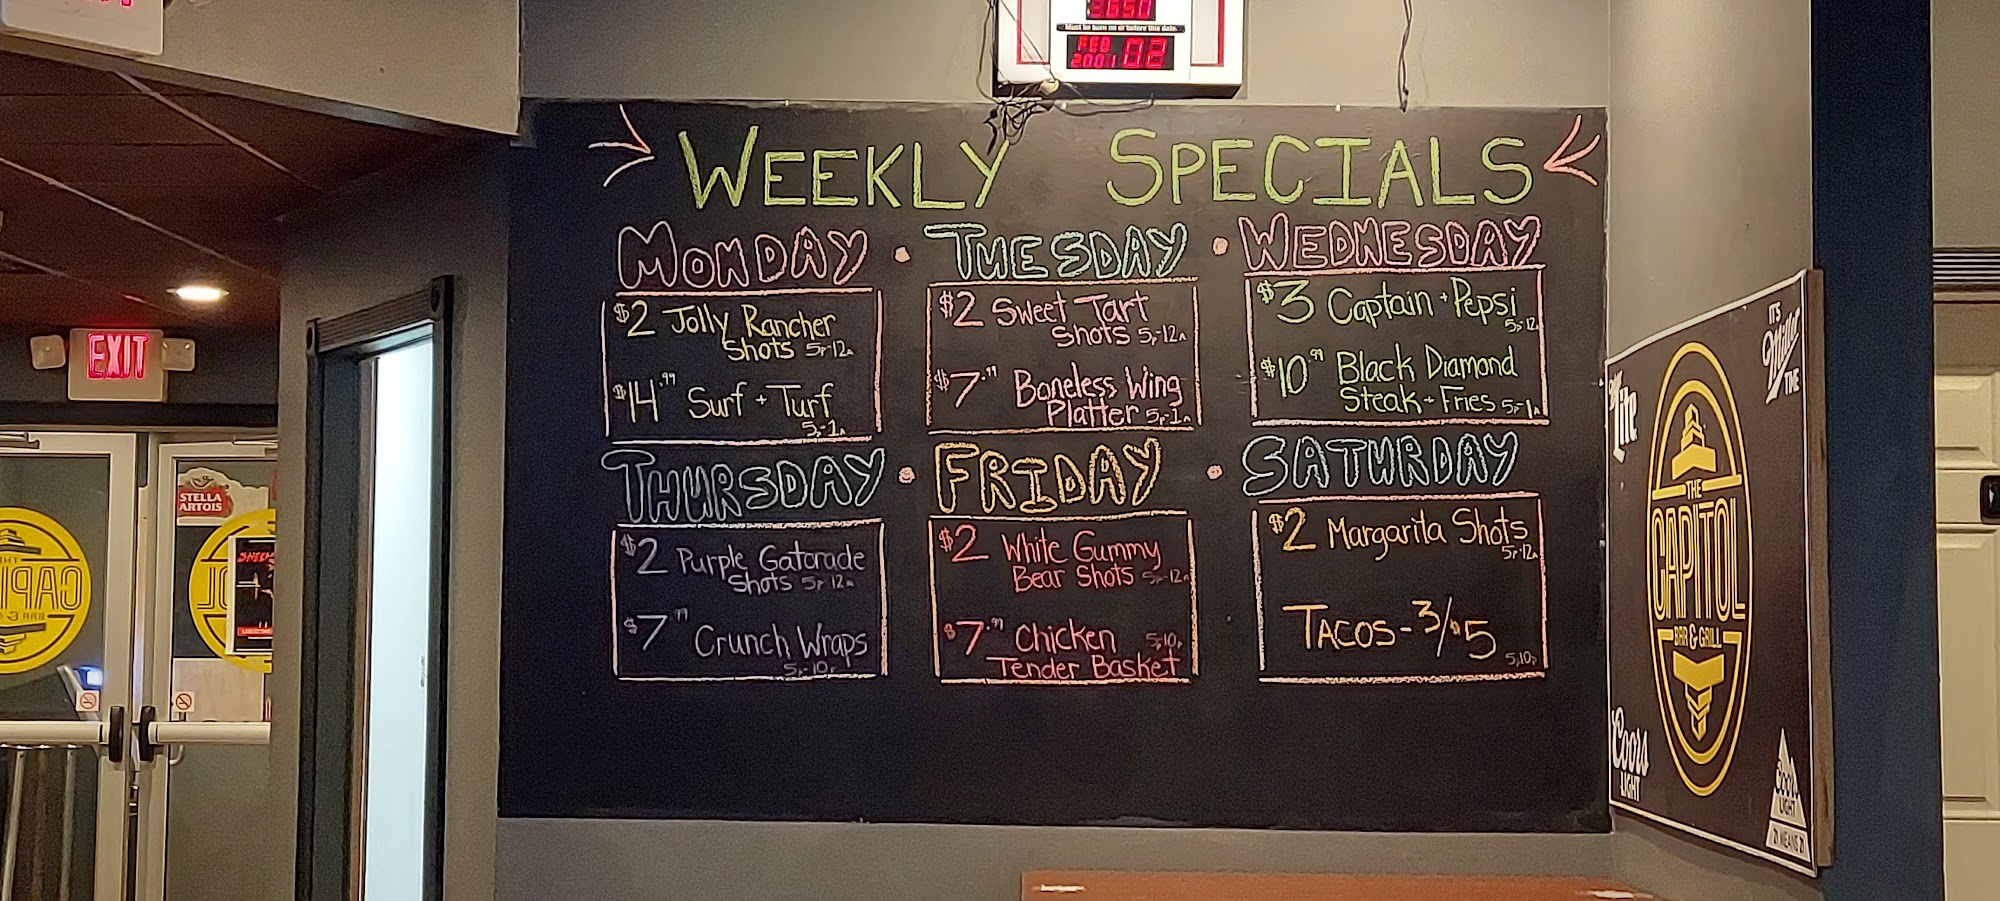 Must be born on or before this date.
FEB
2001 02
WEEKLY SPECIALS
MONDAY • TUESDAY • WEDNESDAY
$2 Jolly Rancher
Shots 5p-12a
$14.99 Surf + Turf
5p-1a
$2 Sweet Tart
Shots 5p-12a
$7.99 Boneless Wing
Platter 5p-1a
$3 Captain + Pepsi
5p-12a
$10.99 Black Diamond
Steak + Fries 5p-1a
THURSDAY • FRIDAY • SATURDAY
$2 Purple Gatorade
Shots 5p-12a
$7.99 Crunch Wraps
5p-10p
$2 White Gummy
Bear Shots 5p-12a
$7.99 Chicken 5p-10p
Tender Basket
$2 Margarita Shots
5p-12a
TACOS - 3/$5
5-10p
EXIT
STELLA
ARTOIS
Lite
IT'S
Miller
TIME
THE
CAPITOL
BAR & GRILL
Coors
LIGHT
Coors
LIGHT
21 MEANS 21